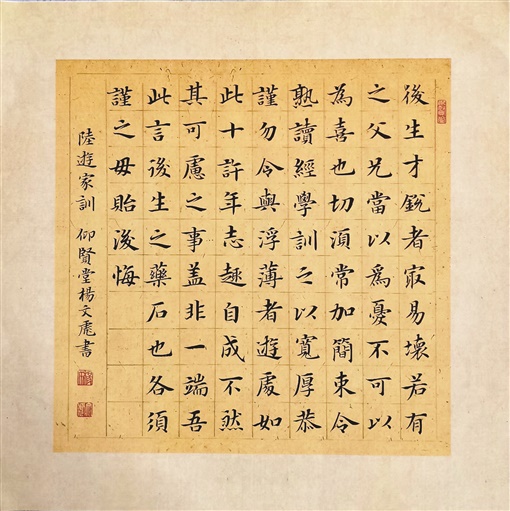 後生才銳者冣易壞若有
之父兄當以爲憂不可以
為喜也切須常加簡束令
熟讀經學訓之以寬厚恭
謹勿令與浮薄者遊處如
此十許年志趣自成不然
其可慮之事盖非一端吾
此言後生之藥石也各須
謹之毋貽後悔
陸遊家訓 仰賢堂楊文書